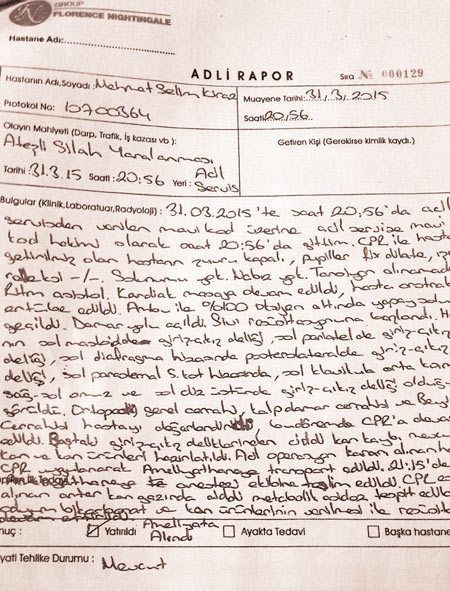 GROUP
FLORENCE NIGHTINGALE
Hastane Adı:
ADLİ RAPOR
Sıra No 000129
Hastanın Adı, Soyadı: Mehmet Selim Kiraz
Muayene Tarihi: 31/3/2015
Protokol No: 10700364
Saati: 20:56
Olayın Mahiyeti (Darp, Trafik, İş kazası vb ):
Getiren Kişi (Gerekirse kimlik kaydı.)
Ateşli Silah Yaralanması
Tarihi: 31.3.15 Saati: 20:56 Yeri: Acil Servis
Bulgular (Klinik, Laboratuar, Radyoloji): 31.03.2015'te saat 20:56'da acil
servisden verilen mavi kod üzerine acil servise mavi
kod hekimi olarak saat 20:56'da gittim. CPR ile hasta
getirilmiş olan hastanın şuuru kapalı, pupiller fix dilate, ışık
refleksi -/-. Solunumu yok. Nabız yok. Tansiyon alınamadı
Ritm asistol. Kardiak masaja devam edildi, hasta
entübe edildi. Ambu ile %100 oksijen altında yapay solunum
geçildi. Damar yolu açıldı. Sıvı resüsitasyonuna başlandı.
sol mastoidde giriş-çıkış deliği, sol parietalde giriş-çıkış
deliği, sol diafragma hizasında posterolateralde giriş-çıkış
deliği, sol 5. kot hizasında, sol klavikula orta
sağ-sol omuz ve sol diz üstünde giriş-çıkış deliği olduğu
görüldü. Ortopedi, genel cerrahi, kalp damar cerrahisi ve Beyin
Cerrahisi hastayı değerlendirdi, CPR'a devam
edildi. Baştaki giriş-çıkış deliklerinden ciddi kan kaybı mevcut
kan ve kan ürünleri hazırlatıldı. Acil operasyon kararı alınan
CPR uygulanarak Ameliyathaneye transport edildi. 21:15'de
anestezi ekibine teslim edildi. CPR
alınan arter kan gazında ciddi metabolik asidoz tespit edildi
bikarbonat ve kan ürünlerinin verilmesi ile
devam etmekteydi.
nuç : Yatırıldı Ameliyata Alındı Ayakta Tedavi Başka hastane
yati Tehlike Durumu : Mevcut